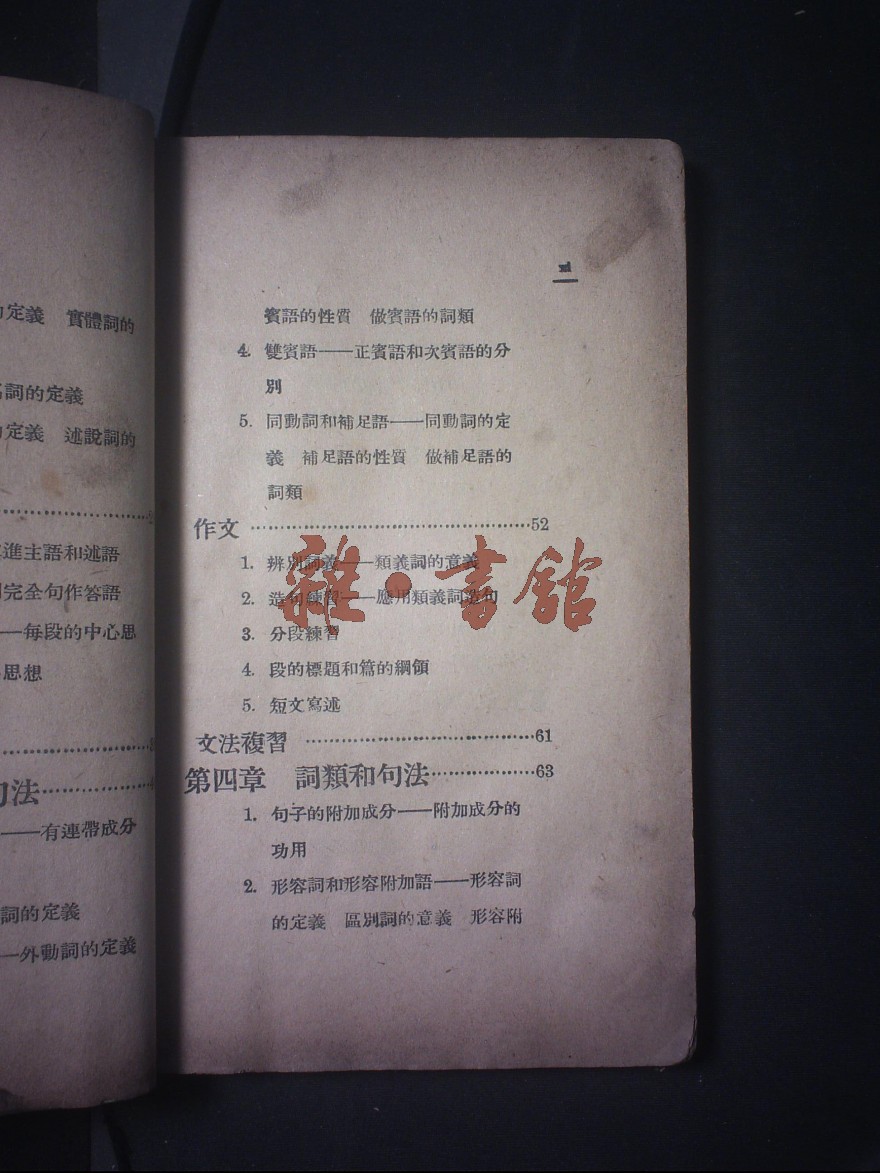 的定義　實體詞的
詞的定義
的定義　述說詞的
進主語和述語
完全句作答語
——每段的中心思
思想
句法
——有連帶成分
詞的定義
——外動詞的定義
賓語的性質　做賓語的詞類
4. 雙賓語——正賓語和次賓語的分
別
5. 同動詞和補足語——同動詞的定
義　補足語的性質　做補足語的
詞類
作文 ……………………………52
1. 辨別詞義——類義詞的意義
2. 造句練習——應用類義詞造句
3. 分段練習
4. 段的標題和篇的綱領
5. 短文寫述
文法複習 ……………………………61
第四章　詞類和句法………………63
1. 句子的附加成分——附加成分的
功用
2. 形容詞和形容附加語——形容詞
的定義　區別詞的意義　形容附
雜·書館